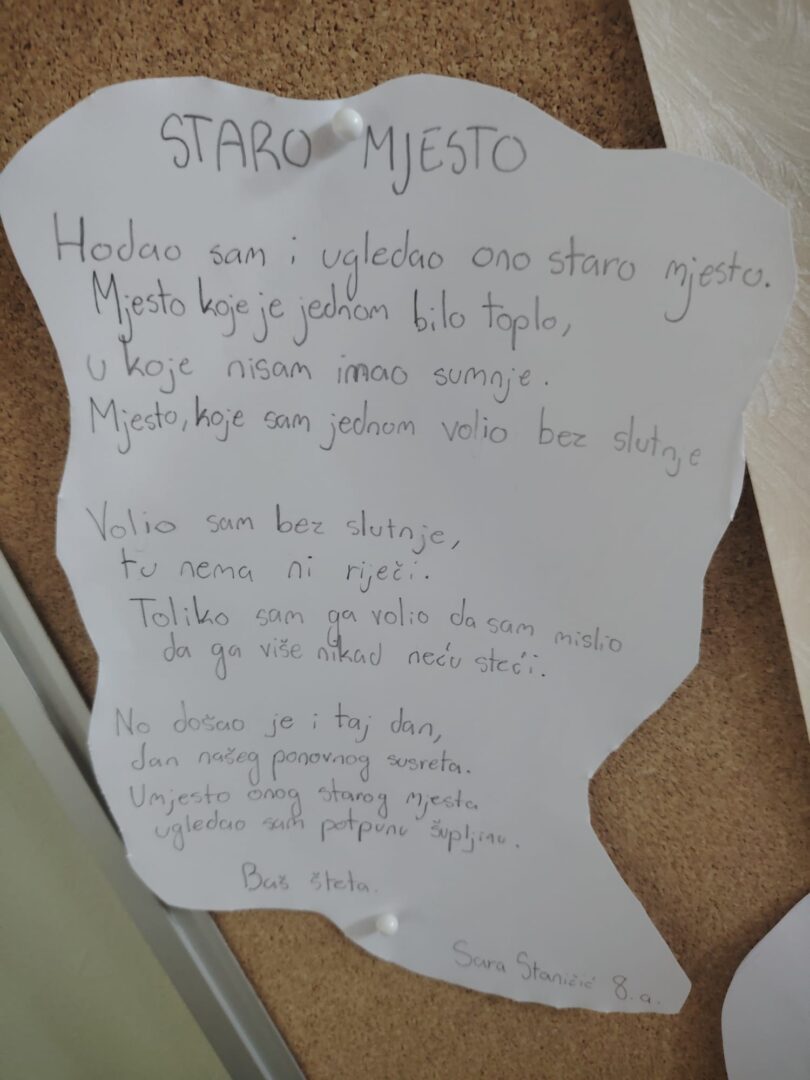 STARO MJESTO
Hodao sam i ugledao ono staro mjesto.
Mjesto koje je jednom bilo toplo,
u koje nisam imao sumnje.
Mjesto, koje sam jednom volio bez slutnje
Volio sam bez slutnje,
tu nema ni riječi.
Toliko sam ga volio da sam mislio
da ga više nikad neću steći.
No došao je i taj dan,
dan našeg ponovnog susreta.
Umjesto onog starog mjesta
ugledao sam potpunu šupljinu.
Baš šteta.
Sara Staničić 8.a.